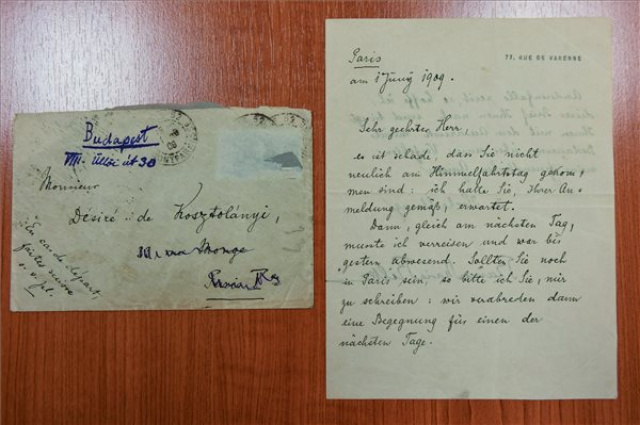 Budapest
VIII. Üllői út 30
Monsieur
Désiré de Kosztolányi,
rue Monge
Paris
En cas de départ,
faites suivre
s. v. pl.
77, RUE DE VARENNE
Paris
am 1 Juny 1909.
Sehr geehrter Herr,
es ist schade, dass Sie nicht
neulich am Himmelfahrtstag gekom=
men sind: ich hatte Sie, Ihrer An=
meldung gemäß, erwartet.
Dann, gleich am nächsten Tag,
musste ich verreisen und war bis
gestern abwesend. Sollten Sie noch
in Paris sein, so bitte ich Sie, mir
zu schreiben: wir verabreden dann
eine Begegnung für einen der
nächsten Tage.